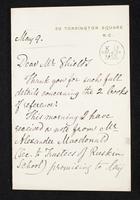 30 TORRINGTON SQUARE
W.C.
May 9.
Dear Mr Shields
Thank you for such full
details concerning the 2 books
of reference!
This morning I have
received a note from Mr
Alexander Macdonald
(Sec. to Trustees of Ruskin
School) promising to lay